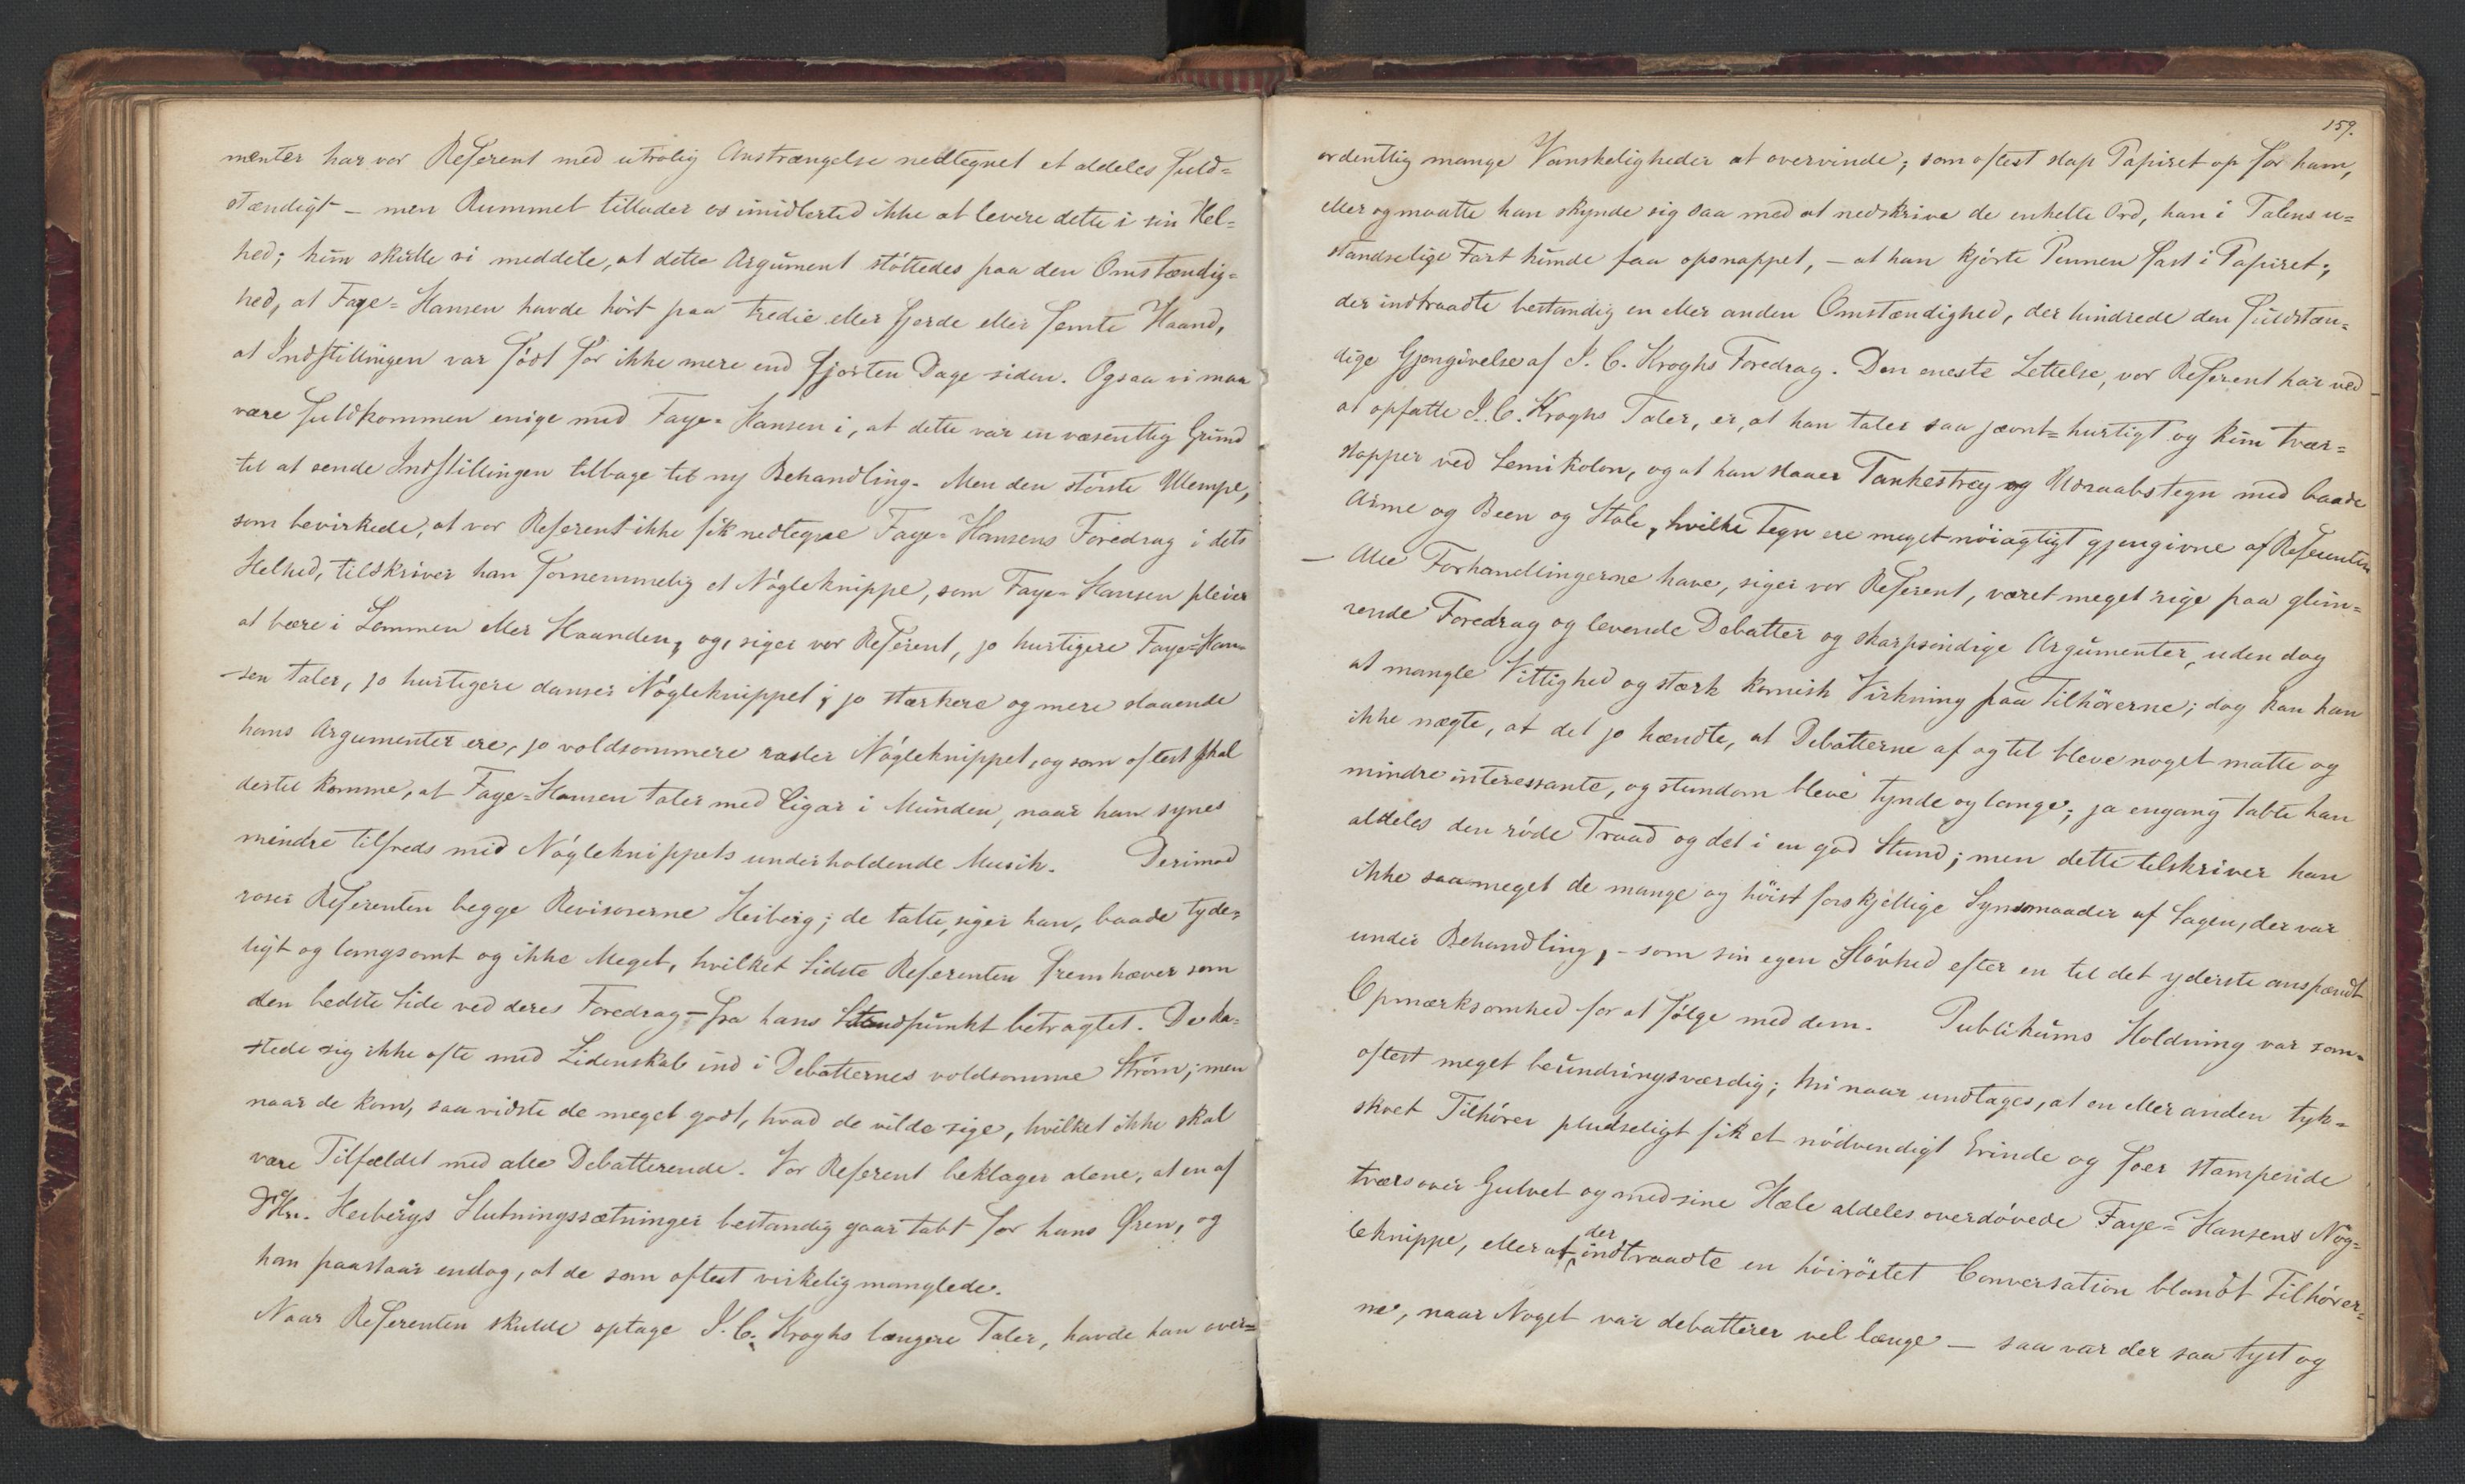 menter har vor Referent med utrolig Anstrængelse nedtegnet et aldeles fuld=
stændigt – men Rummet tillader os imidlertid ikke at levere dette i sin Hel=
hed; kun skulle vi meddele, at dette Argument støttedes paa den Omstændig=
hed, at Faye=Hansen havde hört paa tredie eller fjerde eller femte Haand,
at Indstillingen var født for ikke mere end fjorten Dage siden. Ogsaa vi maa
være fuldkommen enige med Faye=Hansen i, at dette var en væsentlig Grund
til at sende Indstillingen tilbage til ny Behandling. Men den største Ulempe,
som bevirkede, at vor Referent ikke fik nedtegne Faye=Hansens Foredrag i dets
Helhed, tilskriver han fornemmelig et Nøgleknippe, som Faye=Hansen pleier
at bære i Lommen eller Haanden, og, siger vor Referent, jo hurtigere Faye=Han=
sen taler, jo hurtigere danser Nøgleknippet; jo stærkere og mere slaaende
hans Argumenter ere, jo voldsommere rasler Nøgleknippet, og som oftest skal
dertil komme, at Faye=Hansen taler med Cigar i Munden, naar han synes
mindre tilfreds med Nøgleknippets underholdende Musik. Derimod
roser Referenten begge Revisorerne Heiberg; de talte, siger han, baade tyde=
ligt og langsomt og ikke Meget, hvilket Sidste Referenten fremhæver som
den bedste Side ved deres Foredrag – fra hans Standpunkt betragtet. De ka=
stede sig ikke ofte med Lidenskab ind i Debatternes voldsomme Strøm; men
naar de kom, saa vidste de meget godt, hvad de vilde sige, hvilket ikke skal
være Tilfældet med alle Debatterende. Vor Referent beklager alene, at en af
Hr. Heibergs Slutningssætninger bestandig gaar tabt for hans Øren, og
han paastaar endog, at de som oftest virkelig manglede.
Naar Referenten skulde optage J. C. Kroghs længere Taler, havde han over=
159.
ordentlig mange Vanskeligheder at overvinde; som oftest slap Papiret op for ham,
eller og maatte han skynde sig saa med at nedskrive de enkelte Ord, han i Talens u=
standselige Fart kunde faa opsnappet, – at han kjørte Pennen fast i Papiret;
der indtraadte bestandig en eller anden Omstændighed, der hindrede den fuldstæn=
dige Gjengivelse af J. C. Kroghs Foredrag. Den eneste Lettelse, vor Referent har ved
at opfatte J. C. Kroghs Taler, er, at han taler saa jævnt=hurtigt og kun tvær=
stopper ved Semikolon, og at han slaaer Tankestreg og Udraabstegn med baade
Arme og Been og Stole, hvilke Tegn ere meget nöiagtigt gjengivne af Referenten
– Alle Forhandlingerne have, siger vor Referent, været meget rige paa glim=
rende Foredrag og levende Debatter og skarpsindige Argumenter, uden dog
at mangle Vittighed og stærk komisk Virkning paa Tilhörerne; dog kan han
ikke nægte, at det jo hændte, at Debatterne af og til bleve noget matte og
mindre interessante, og stundom bleve tynde og lange; ja engang tabte han
aldeles den røde Traad og det i en god Stund; men dette tilskriver han
ikke saameget de mange og höist forskjellige Synsmaader af Sagen, der var
under Behandling, – som sin egen Sløvhed efter en til det yderste anspændt
Opmærksomhed for at følge med dem. Publikums Holdning var som=
oftest meget beundringsværdig; thi naar undtages, at en eller anden tyk=
skoet Tilhører pludseligt fik et nødvendigt Erinde og foer stampende
tværs over Gulvet og med sine Hæle aldeles overdøvede Faye=Hansens Nøg=
leknippe, eller at der indtraadte en höiröstet Conversation blandt Tilhører=
ne, naar Noget var debatterer vel længe – saa var der saa tyst og